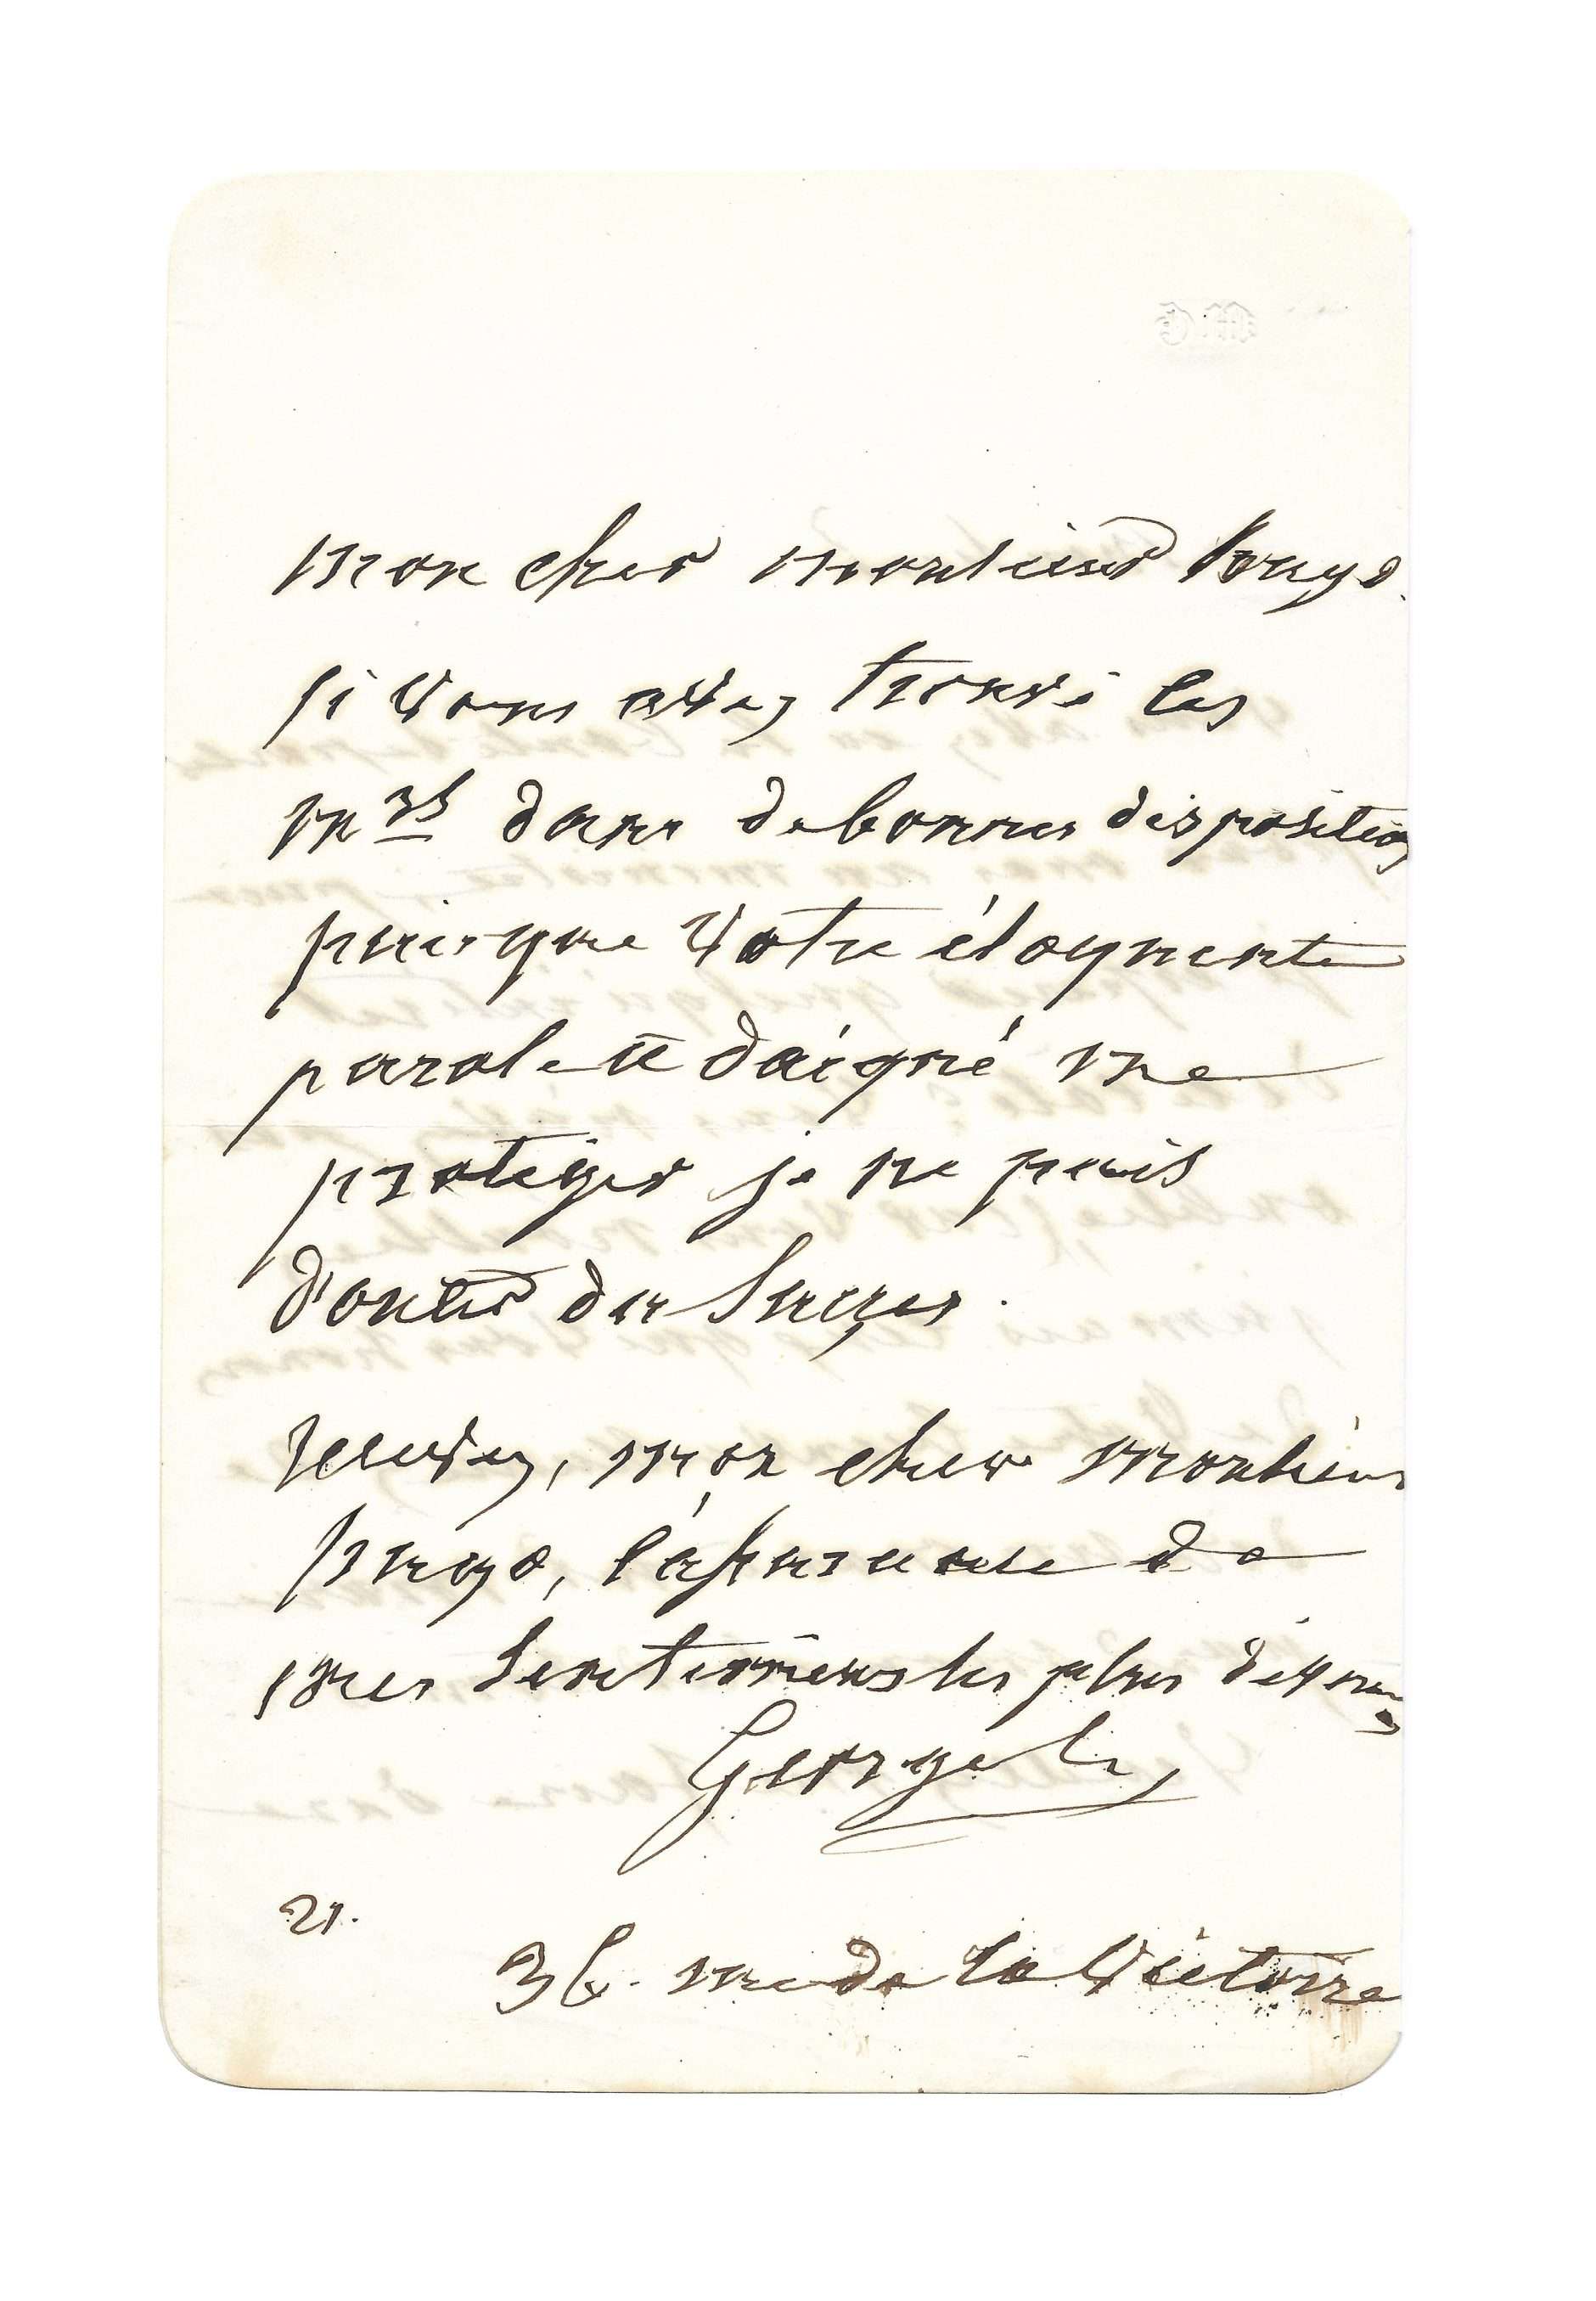 mon cher monsieur hugo.
si vous avez trouvé les
mrs dans de bonnes dispositions
puisque votre éloquente
parole a daigné me
protéger je ne puis
douter du suçes.
recevez, mon cher monsieur
hugo, l'assurance de
mes sentiments les plus dévoués
George
21.
36. rue de la Victoire